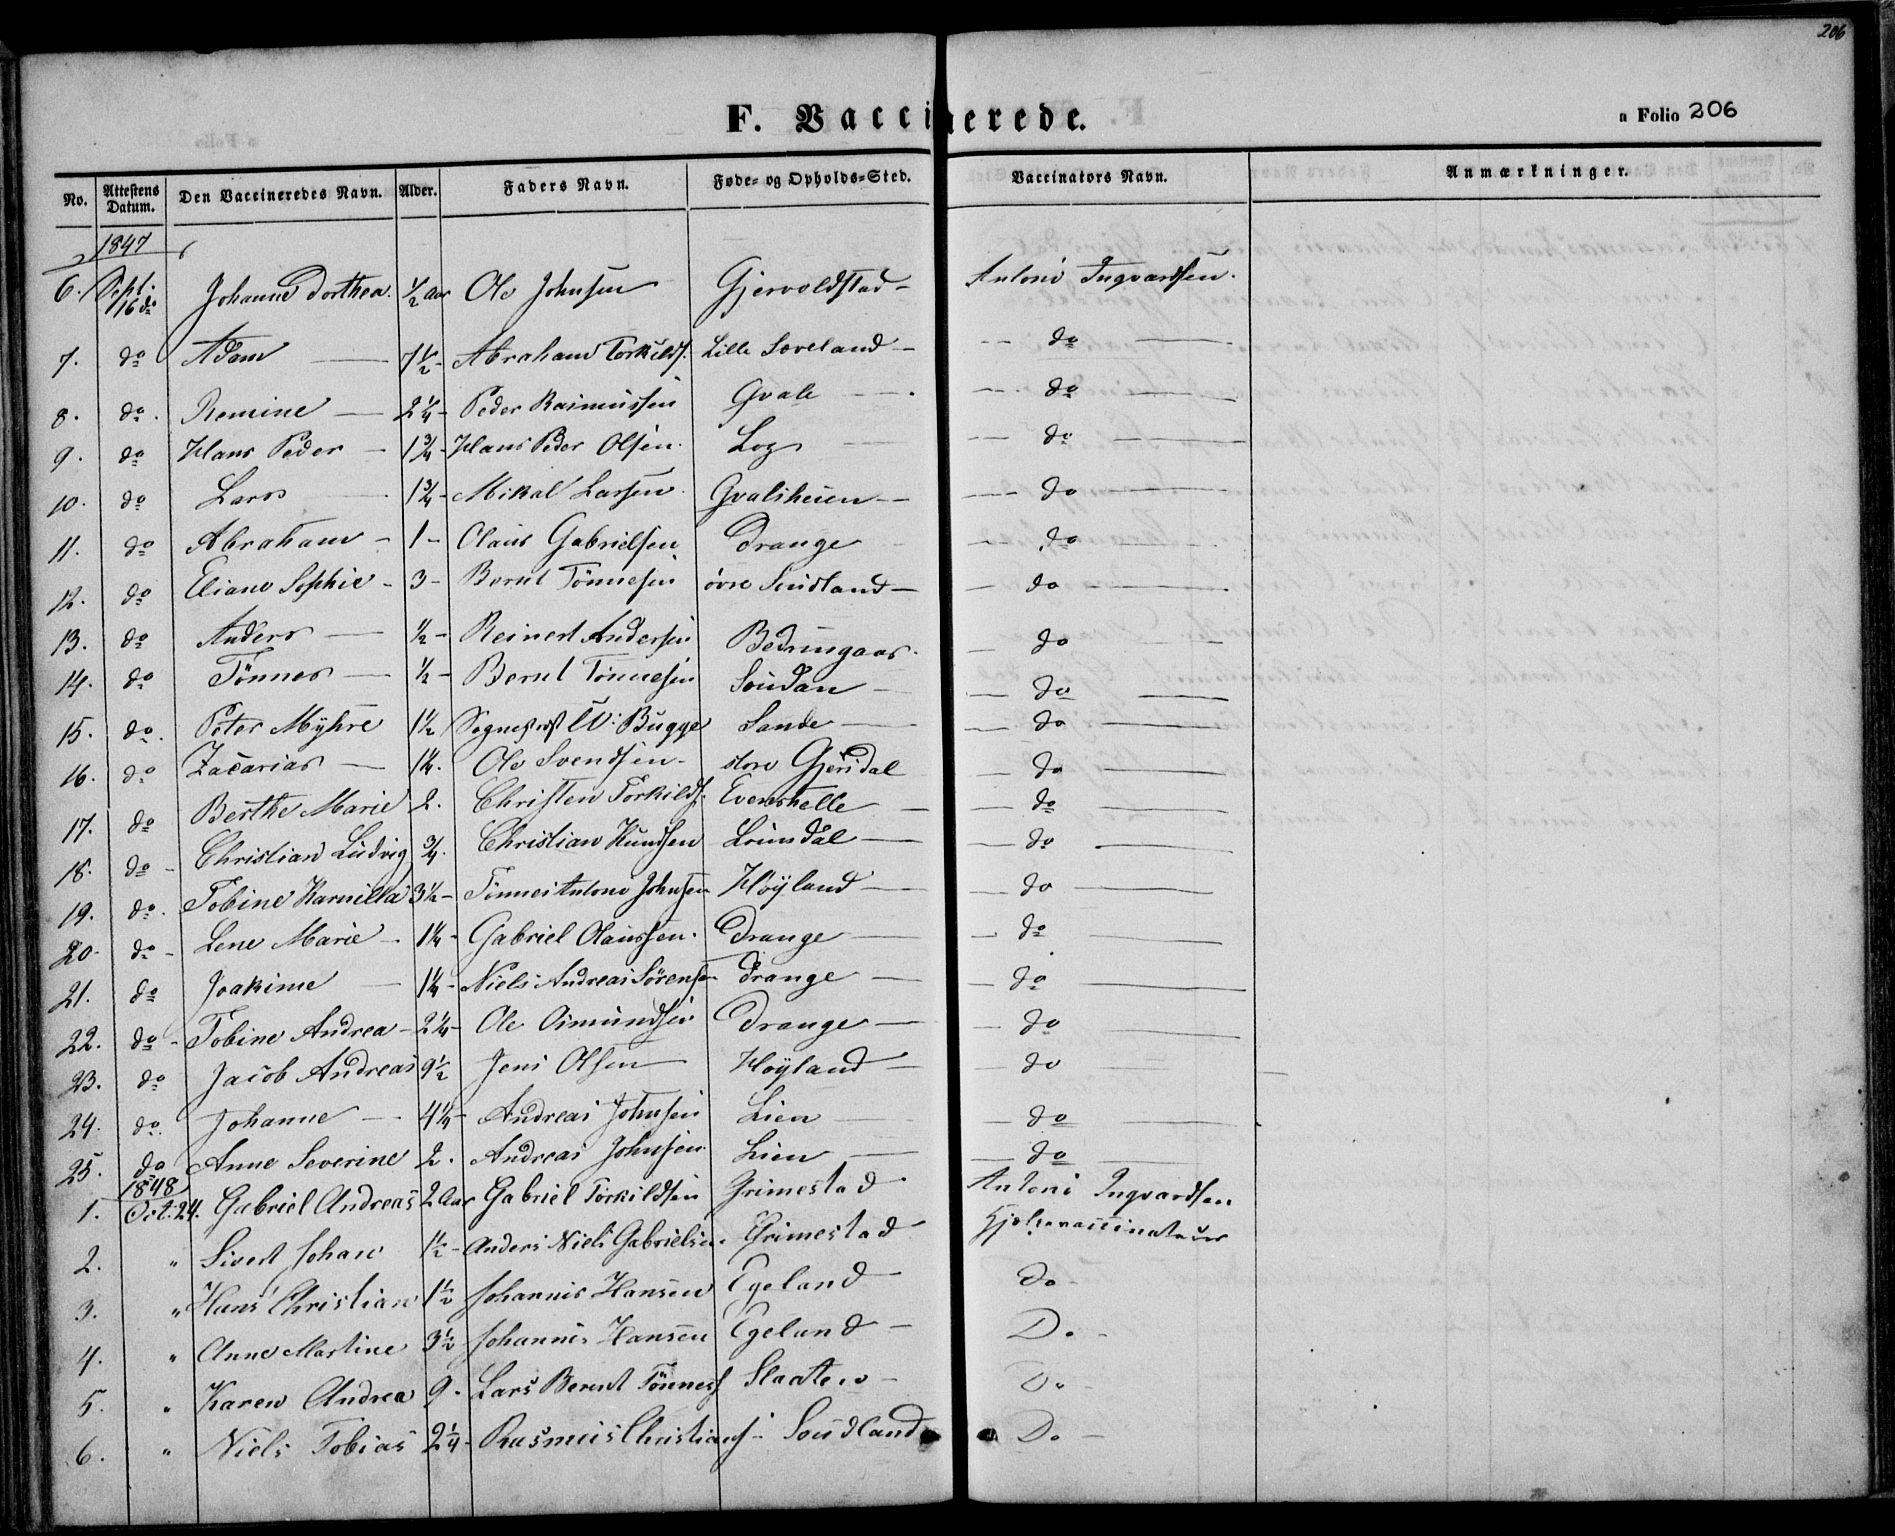 206
F. Vaccinerede.
a Folio 206
No. Attestens Datum. Den Vaccineredes Navn. Alder. Faders Navn. Føde- og Opholds-Sted. Vaccinators Navn. Anmærkninger.
1847
6. Sept. 16 do Johanne Dorthea. ½ Aar Ole Johnsen Gjervoldstad - Antoni Ingvardsen.
7. do Adam 7½ - Abraham Torkilds. Lille Soveland - do
8. do. Remine 2¼ - Peder Rasmussen Qvale do
9. do Hans Peder - 1¾ - Hans Peder Olsen. Log do
10. do Lars 1¾ - Mikal Larsen Qvalsheien - do
11. do Abraham - 1 - Olaus Gabrielsen Drange do
12. do Eliane Sophie - 3 - Bernt Tønnesen övre Seudland - do
13. do Anders ½ - Reinert Andersen Bedringaas. do
14. do Tönnes ½ - Bernt Tönnesen Soudan do
15. do. Peter Myhre 1½ Sognepræst W: Bugge Sande do
16. do Zacarias 1¼. Ole Svendsen - store Gjersdal do
17. do Berthe Marie 2. Christen Torkilds. Evenstelle do
18. do - Christian Ludvig ¾. Christian Knudsen Lundal do
19. do. Tobine Kamilla 3½ - Tönnes Antoni Johnsen Høyland do
20. do - Lene Marie - 1¼ - Gabriel Olaussen. Drange do
21. do Joakime 1¼ - Niels Andreas Sörensen Drange do
22. do - Tobine Andrea - 2¼ - Ole Osmundsen Drange do
23. do Jacob Andreas 9½ Jens Olsen Høyland do
24. do. Johanne 4¼ - Andreas Johnsen Lien do
25. do Anne Severine 2. Andreas Johnsen Lien do
1848
1. Oct. 24. Gabriel Andreas 2 Aar Gabriel Torkildsen Grimestad Antoni Ingvardsen
2. " Sivert Johan 1½ - Anders Niels Gabrielsen. Grimestad Hjelpevaccinateur
3. " Hans Christian 1½ Johannes Hansen Egeland Do -
4. " Anne Martine 3½ Johannes Hansen Egeland - Do -
5. " Karen Andrea 9. Lars Bernt Tönness Slaaten - Do -
6. " Niels Tobias 2¼ - Rasmus Christians - Soudland Do -